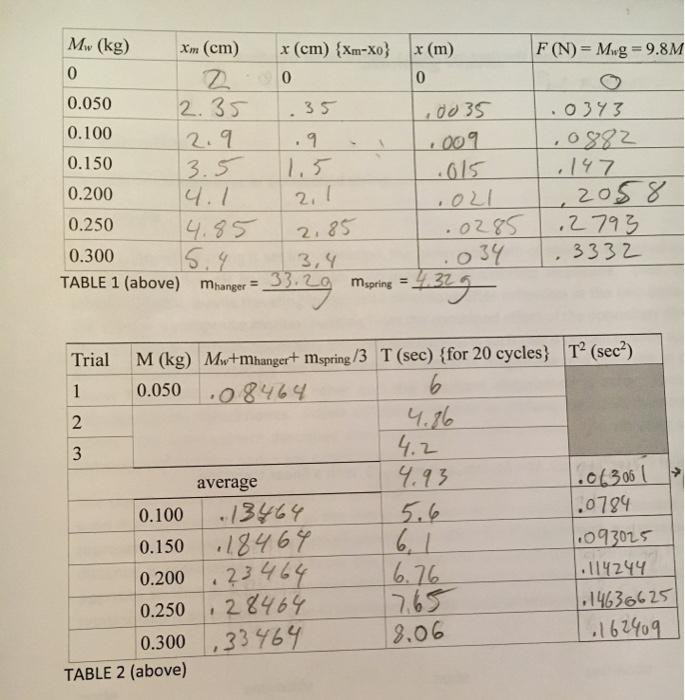 Mw (kg) xm (cm) x (cm) {xm-x0} x (m) F (N) = Mwg = 9.8M
0 2 0 0 0
0.050 2.35 .35 .0035 .0343
0.100 2.9 .9 .009 .0882
0.150 3.5 1.5 .015 .147
0.200 4.1 2.1 .021 .2058
0.250 4.85 2.85 .0285 .2793
0.300 5.4 3.4 .034 .3332
TABLE 1 (above) mhanger = 33.2g mspring = 4.32g
Trial M (kg) Mw+mhanger+ mspring/3 T (sec) {for 20 cycles} T² (sec²)
1 0.050 .08464 6
2 4.86
3 4.2
average 4.93 .063001
0.100 .13464 5.6 .0784
0.150 .18464 6.1 .093025
0.200 .23464 6.76 .114244
0.250 .28464 7.65 .14630625
0.300 .33464 8.06 .162409
TABLE 2 (above)